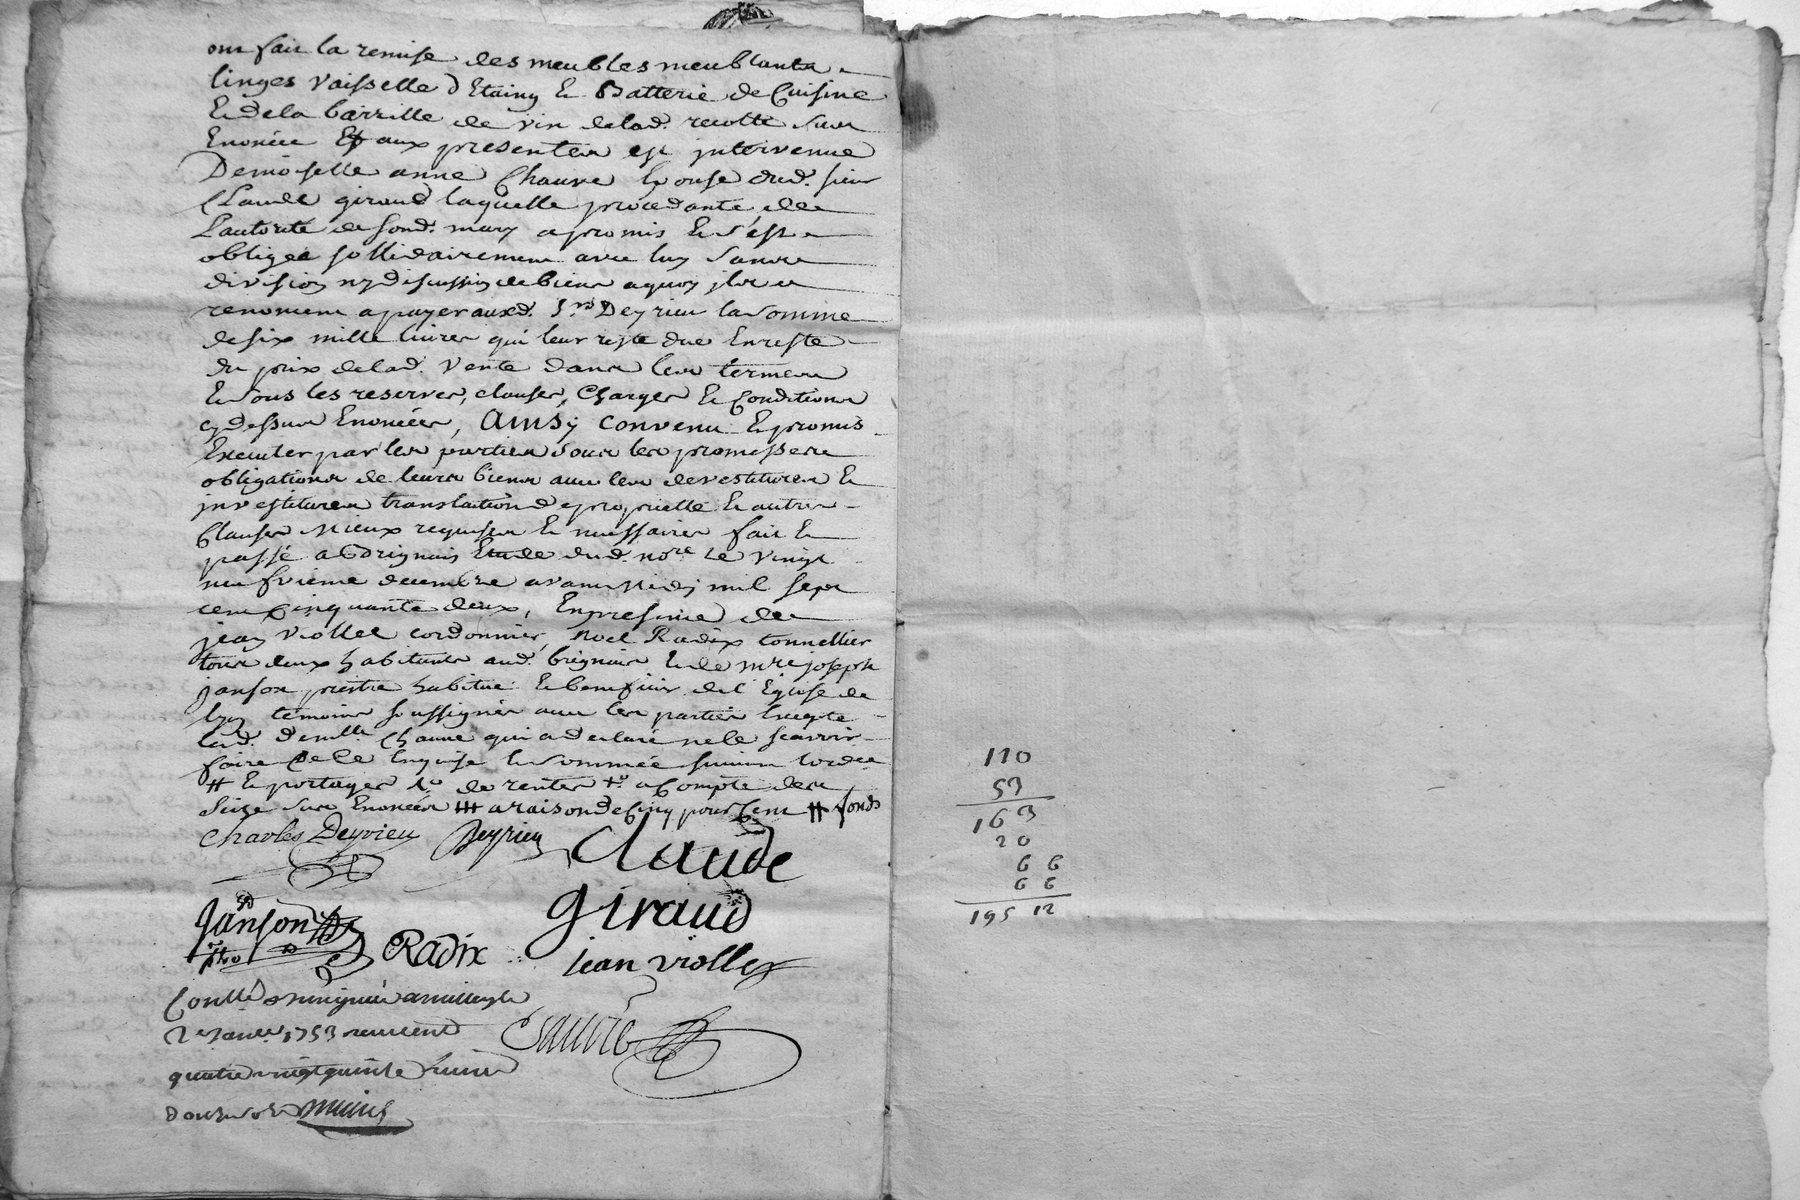 ont fait la remise des meubles meublants
linges vaisselle d'Etaing & Batterie de Cuisine
& de la barrille de vin de lad. recolte sus
Enoncée Et aux presentes est intervenue
Demoiselle anne Chauve Epouse dud. sieur
Claude giraud laquelle procedante de
L'autorité de sond. mary a promis & s'est
obligée sollidairement avec luy sans
division ny discussion de biens a quoy ils
renoncent a payer auxd. Srs Deyrieu la somme
de six mille livres qui leur reste due En reste
du prix de lad. vente dans les termes
& sous les reserves, clauses, Charges & Conditions
cy dessus Enoncées, Ainsy convenu & promis
Executer par les parties sous les promesses
obligations de leurs biens avec les devestitures &
investitures translation de proprietté & autres
Clauses Mieux requises & necessaires fait &
passé a Brignais Etude dud. nore le vingt
neufvieme decembre avant Midy mil sept
cent Cinquante deux, En presence de
jean viollet cordonnier, Noel Radix tonnellier
tous deux habitants aud. brignais & de mre joseph
janson prestre habitué & beneficier de l'Eglise de
lyon temoins soussignés avec les parties Excepté
lad. demlle Chauve qui a declaré ne le scavoir
faire de ce Enquise & sommée suivant l'ordce
# & portager de rentes a Compte des
seize sus Enoncées ## a raison de Cinq pour Cent # fonds
Charles Deyrieu Deyrieu Claude
giraud
Janson
ptre Radix jean viollet
Conllé a millery le
2e janer 1753 receu cent
quatre vingt quinze livres
douze sols
Sauvre
110
53
163
20
6 6
6 6
195 12